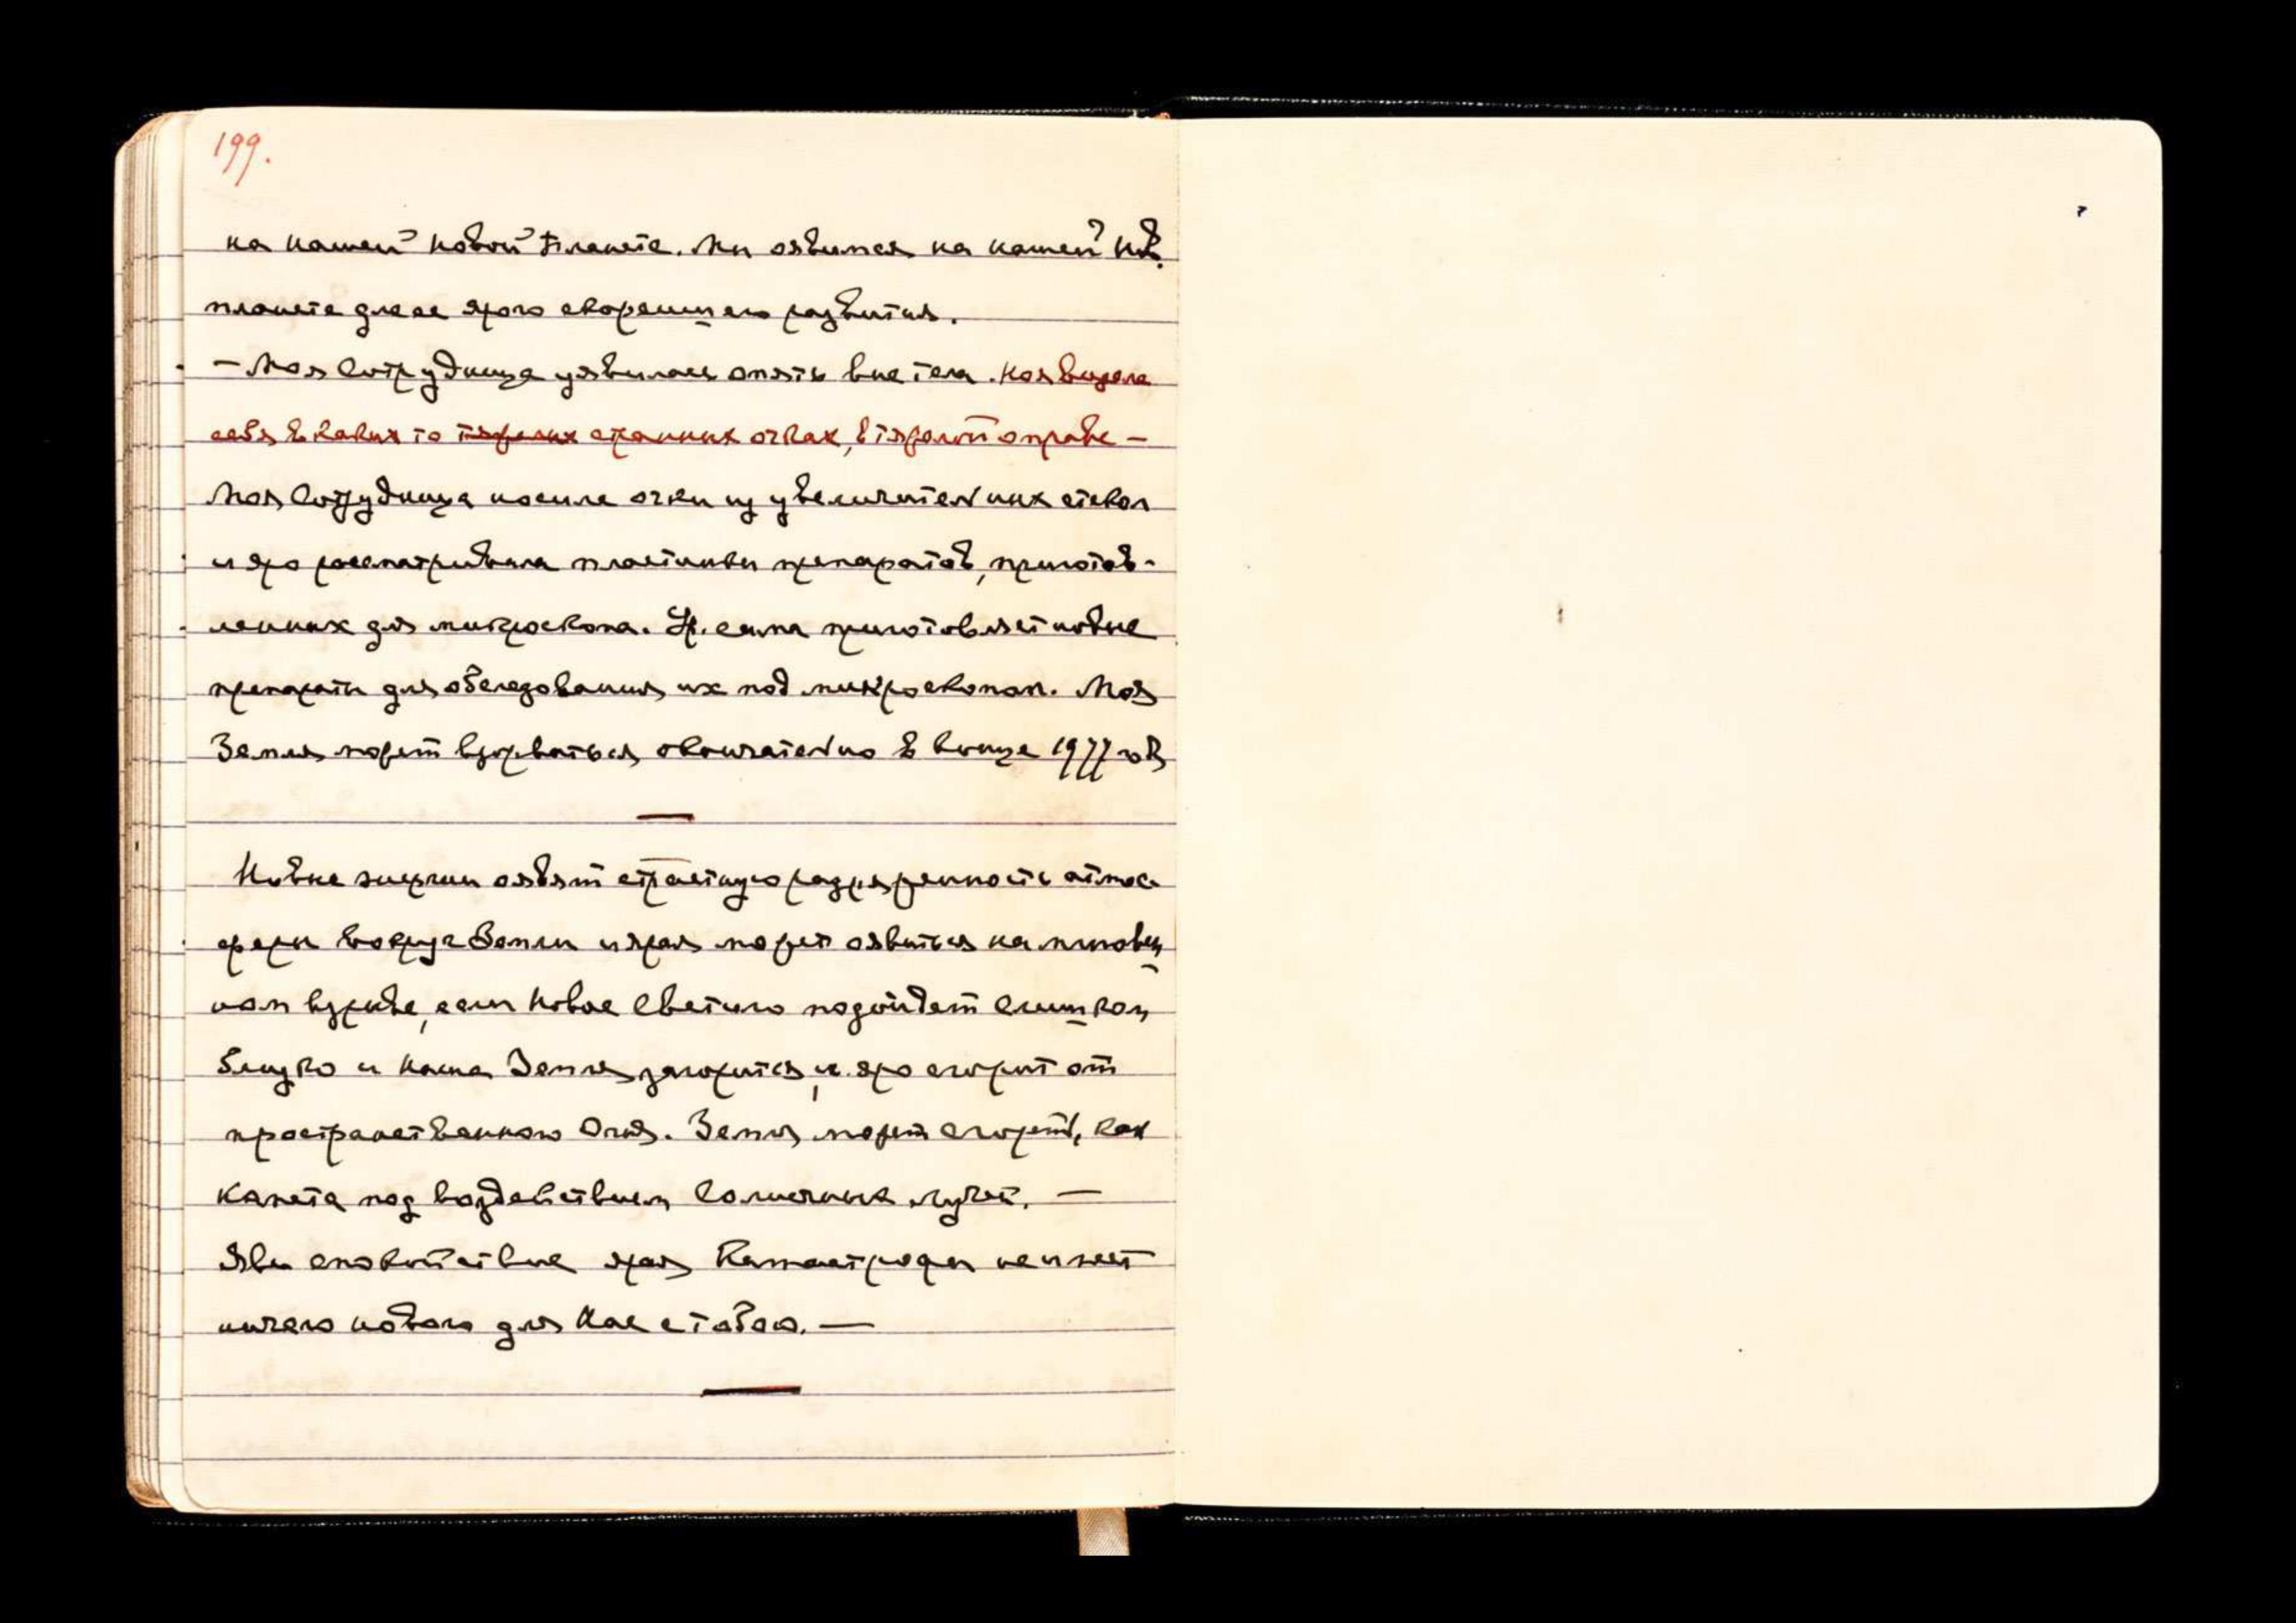 199.
на нашей новой планете. Мы явимся на нашей Нов.
планете для ее ярого скорейшего развития.
— Моя Сотрудница уявилась опять вне тела. Ноя видела
себя в каких то тяжелых странных очках, в тяжелой оправе —
Моя Сотрудница носила очки из увеличительных стекол
и яро рассматривала пластинки препаратов, приготов-
ленных для микроскопа. Ур. сама приготовляет новые
препараты для обследования их под микроскопом. Моя
Земля может взорваться окончательно в конце 1977 года
Новые энергии оявят страстную разряженность атмос-
феры вокруг Земли и ярая может оявиться на мгновен
ном взрыве, если Новое Светило подойдет слишком
близко и наша Земля загорится, и яро сгорит от
пространственного Огня. Земля может сгореть, как
Комета под воздействием Солнечных лучей. —
Яви спокойствие ярая Катастрофы не имеет
ничего нового для Нас с тобою. —